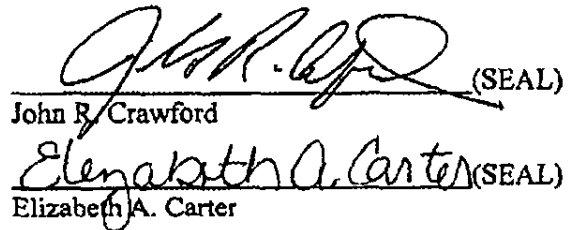 John R. Crawford (SEAL)
John R. Crawford
Elizabeth A. Carter (SEAL)
Elizabeth A. Carter